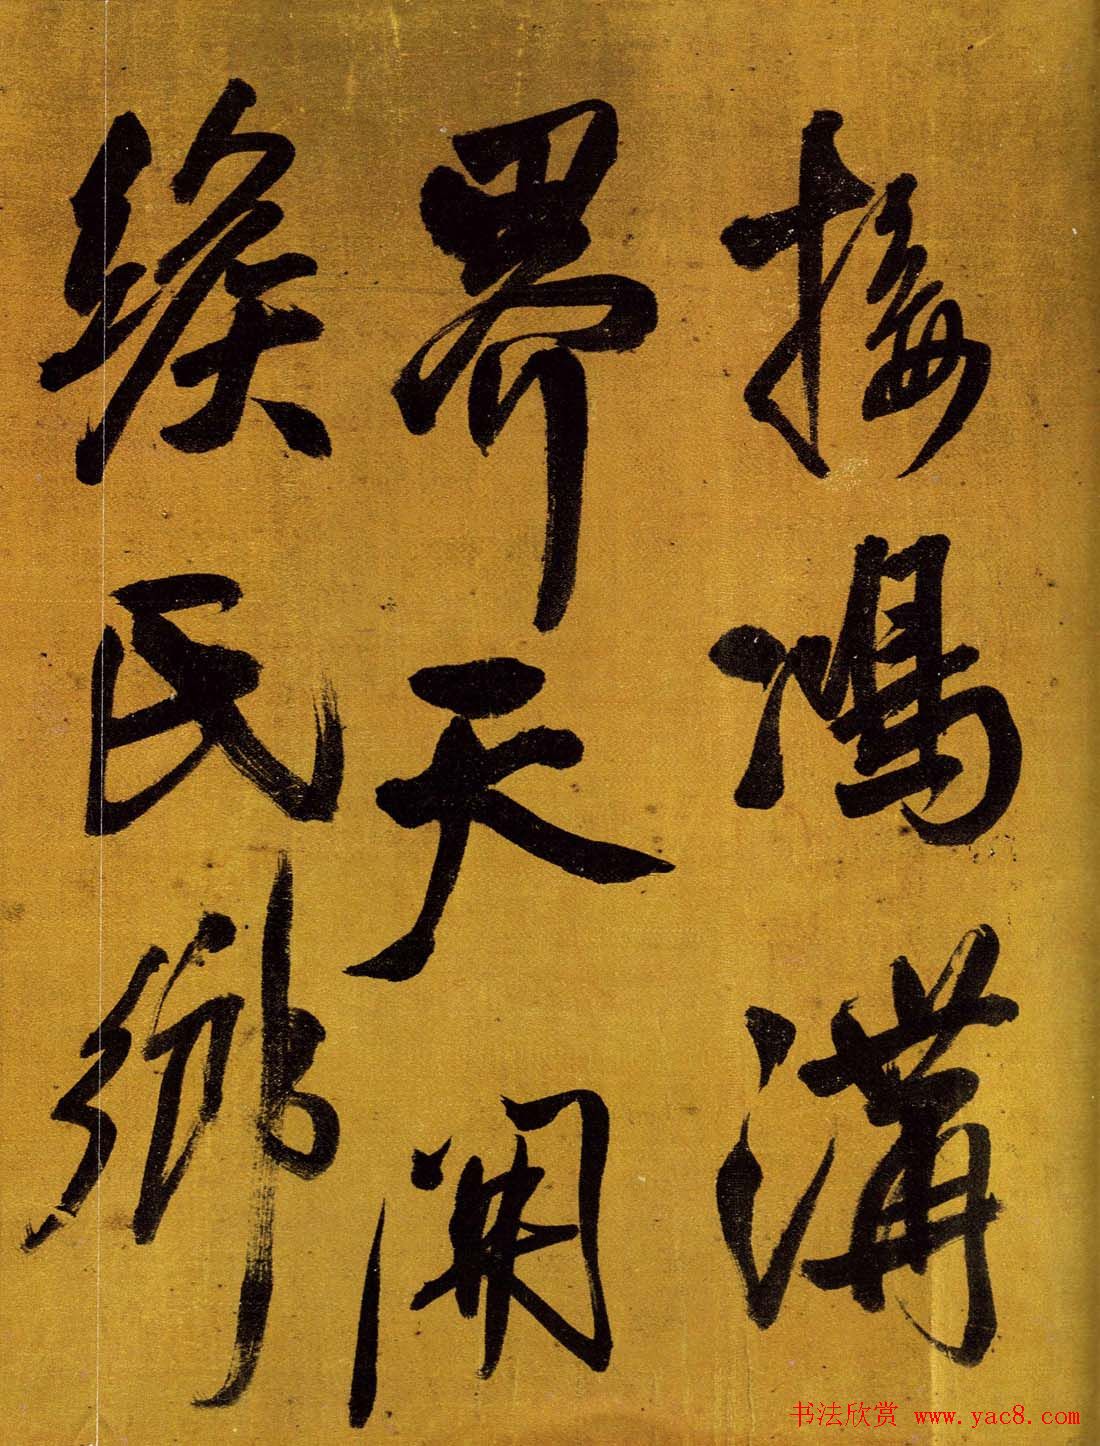 接鴻溝
界天開
緱氏鄉
书法欣赏 www.yac8.com